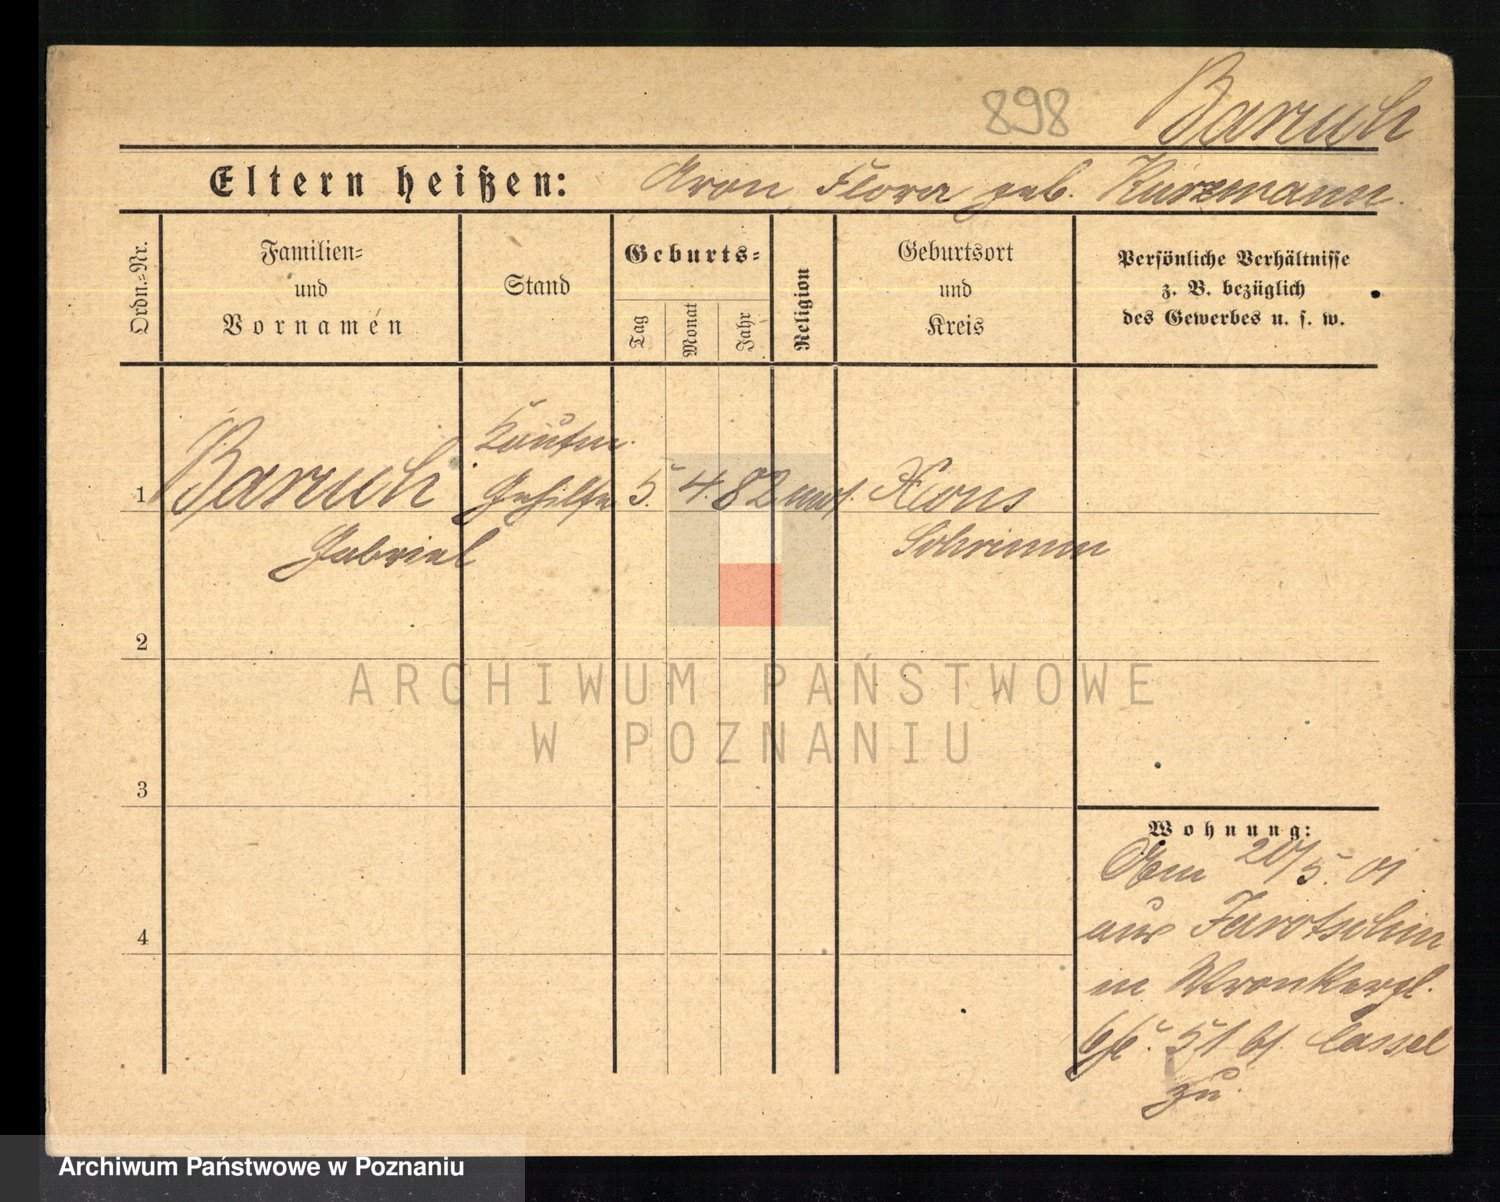 898 Baruch
Eltern heißen: Aron Flora geb. Kurzmann.
Ordn.-Nr.
Familien-
und
Vornamen
Stand
Geburts-
Tag
Monat
Jahr
Religion
Geburtsort
und
Kreis
Persönliche Verhältnisse
z. B. bezüglich
des Gewerbes u. s. w.
Kaufm.
1 Baruch Gehilfe 5. 4. 82 mos. Xions
Gabriel Schrimm
2
3
4
Wohnung:
20/5. 01
aus Jarotschin
in Wronkerpl.
51 bf. Cassel
zu.
ARCHIWUM PAŃSTWOWE
W POZNANIU
Archiwum Państwowe w Poznaniu